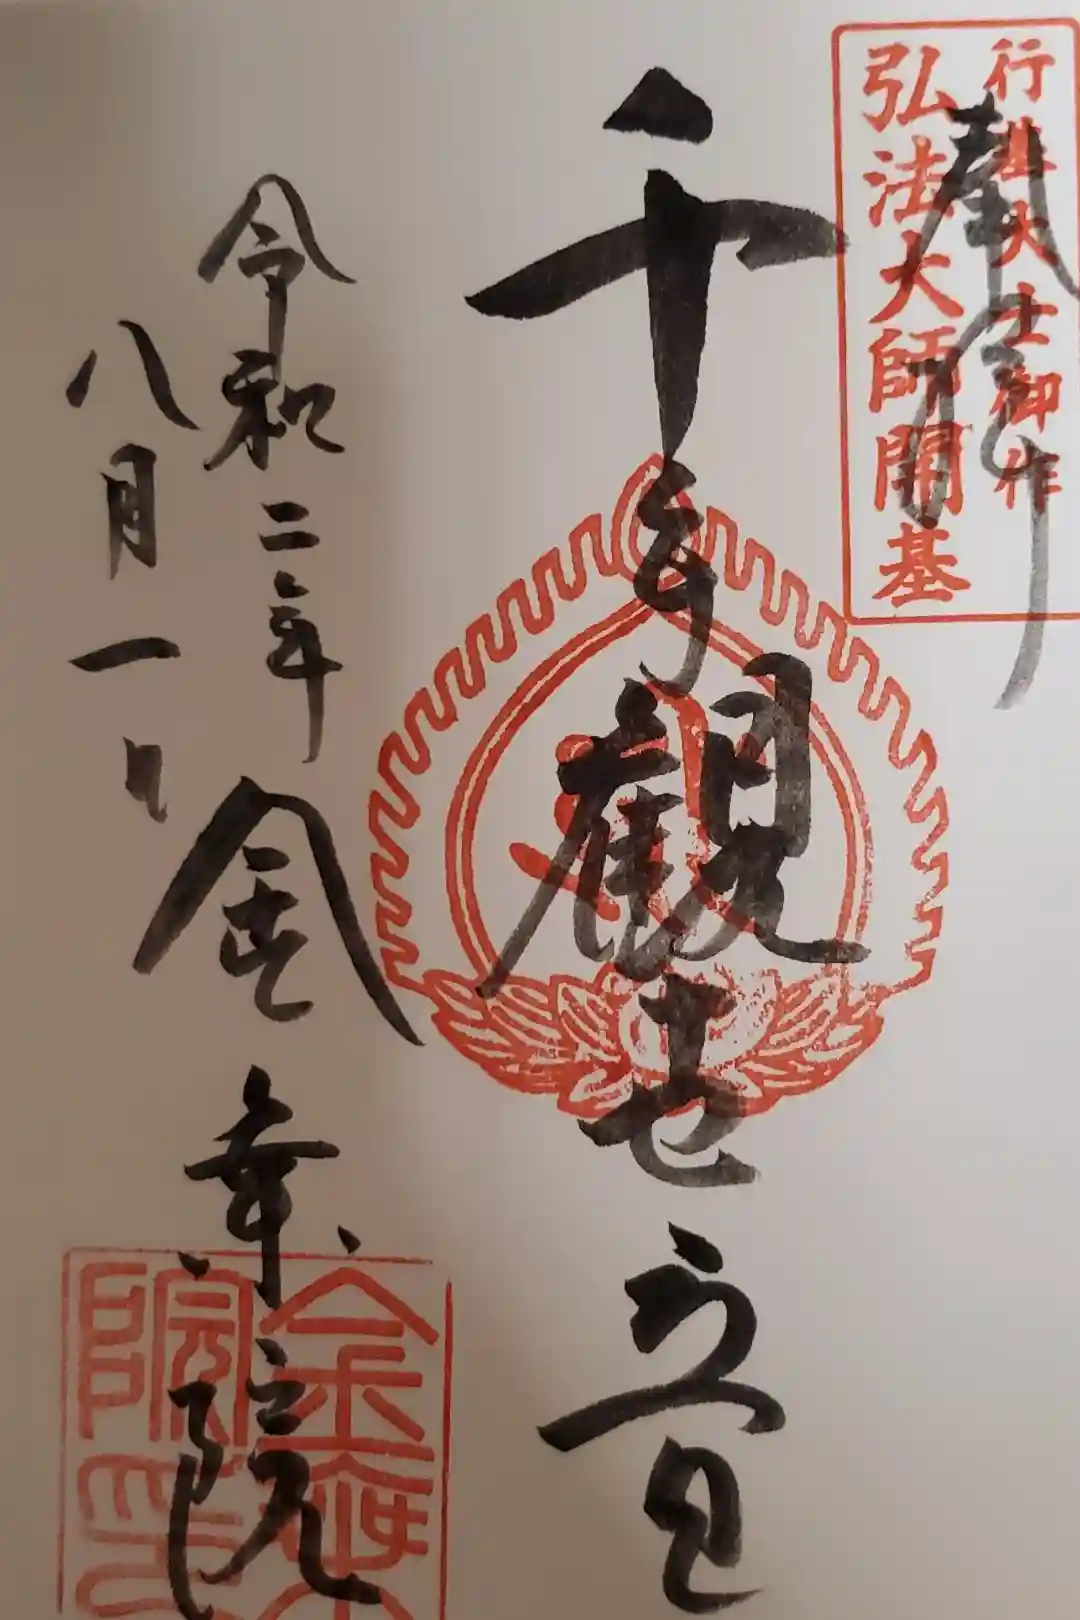 行基大士御作
弘法大師開基
奉拝
千手観世音
令和二年
八月一日
金幸院